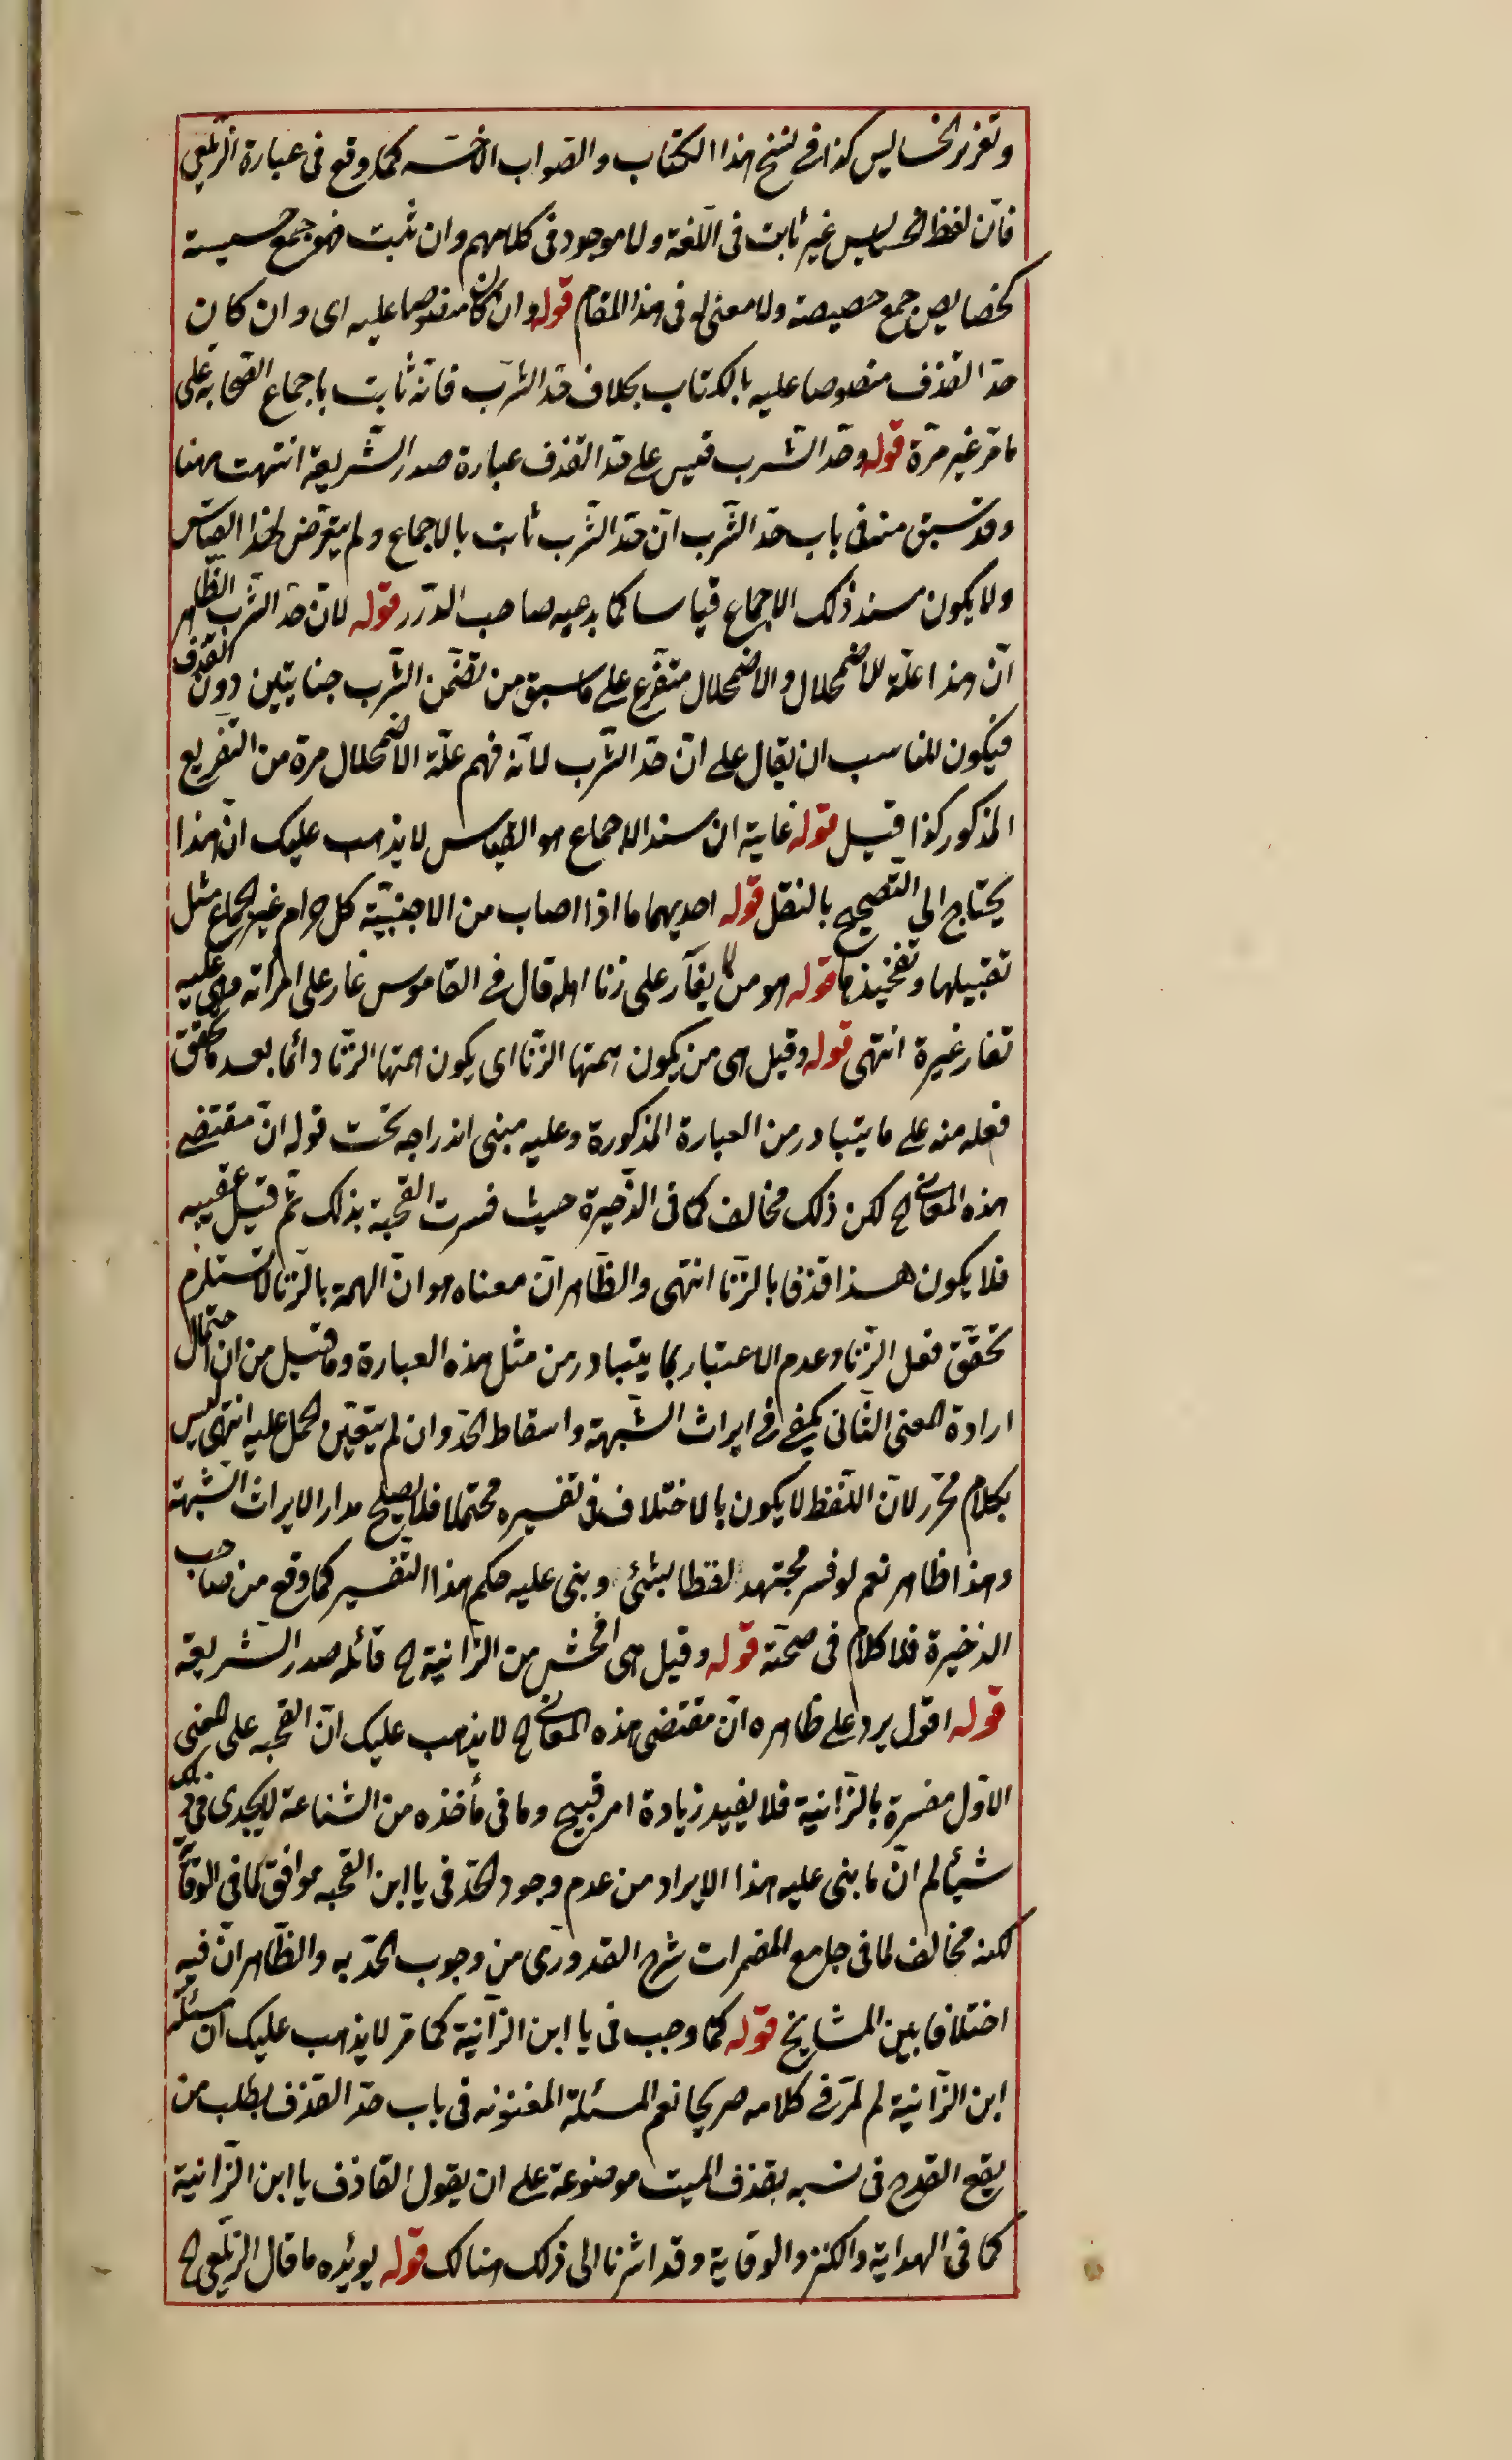 وتعزير الخسايس كذا في نسخ هذا الكتاب والصواب الاخسه كما وقع فى عبارة الزيلعي
فان لفظ الخسايس غير ثابت فى اللغة ولا موجود فى كلامهم وان ثبت فهو جمع خسيسة
كخصايص جمع خصيصة ولا معنى له فى هذا المقام قوله وان كان منصوصا عليه اى وان كان
حد القذف منصوصا عليه بالكتاب بخلاف حد الشرب فانه ثابت باجماع الصحابة على
ما مر غير مرة قوله وحد الشرب قيس على حد القذف عبارة صدر الشريعة انتهت ههنا
وقد سبق منه فى باب حد الشرب ان حد الشرب ثابت بالاجماع ولم يتعرض لهذا القياس
ولا يكون سند ذلك الاجماع قياسا كما يدعيه صاحب الدرر قوله لان حد الشرب الظاهر
ان هذا علة للاضمحلال والاضمحلال متفرع على ما سبق من تضمن الشرب جنايتين دون القذف
فيكون المناسب ان يقال على ان حد الشرب لانه فهم علة الاضمحلال مرة من التفريع
المذكور كذا قيل قوله غاية ان سند الاجماع هو القياس لا يذهب عليك ان هذا
يحتاج الى التصحيح بالنقل قوله احديهما ما اذا اصاب من الاجنبية كل حرام غير الجماع مثل
تقبيلها وتفخيذها قوله هو من لا يغار على زنا اهله قال في القاموس غار على امرأته وهى عليه
تغار غيرة انتهى قوله وقيل هى من يكون همتها الزنا اى يكون همتها الزنا دائما بعد ما تحقق
فعله منه على ما يتبادر من العبارة المذكورة وعليه مبنى اندراجه تحت قوله ان مقتضى
هذه المعانى الخ لكن ذلك مخالف لما فى الذخيرة حيث فسرت القحبة بذلك ثم قيل عقيبه
فلا يكون هذا قذفا بالزنا انتهى والظاهر ان معناه هو ان الهمة بالزنا لا تستلزم
تحقق فعل الزنا وعدم الاعتبار بما يتبادر من مثل هذه العبارة وما قيل من ان احتمال
ارادة المعنى الثانى يكفى في ايراث الشبهة واسقاط الحد وان لم يتعين الحمل عليه انتهى ليس
بكلام محرر لان اللفظ لا يكون بالاختلاف فى تفسيره محتملا فلا يصلح مدارا لايراث الشبهة
وهذا ظاهر نعم لو فسر مجتهد لفظا بشئ وبنى عليه حكم هذا التفسير كما وقع من صاحب
الذخيرة فلا كلام فى صحته قوله وقيل هى افحش من الزانية الخ قائله صدر الشريعة
قوله اقول يرد على ظاهره ان مقتضى هذه المعانى الخ لا يذهب عليك ان القحبه على المعنى
الاول مفسرة بالزانية فلا يفيد زيادة امر قبيح وما فى مأخذه من الشناعة لا يجدى فى ذلك
شيأ ثم ان ما بنى عليه هذا الايراد من عدم وجود الحد فى يا ابن القحبه موافق لما فى الوقاية
لكنه مخالف لما فى جامع المضمرات شرح القدورى من وجوب الحد به والظاهر ان فيه
اختلافا بين المشايخ قوله كما وجب فى يا ابن الزانية كما مر لا يذهب عليك ان مسئلة
ابن الزانية لم تمر في كلامه صريحا نعم المسئلة المعنونه فى باب حد القذف بطلب من
يقع القدح فى نسبه بقذف الميت موضوعة على ان يقول القاذف يا ابن الزانية
كما فى الهداية والكنز والوقاية وقد اشرنا الى ذلك هنالك قوله يويده ما قال الزيلعى الخ